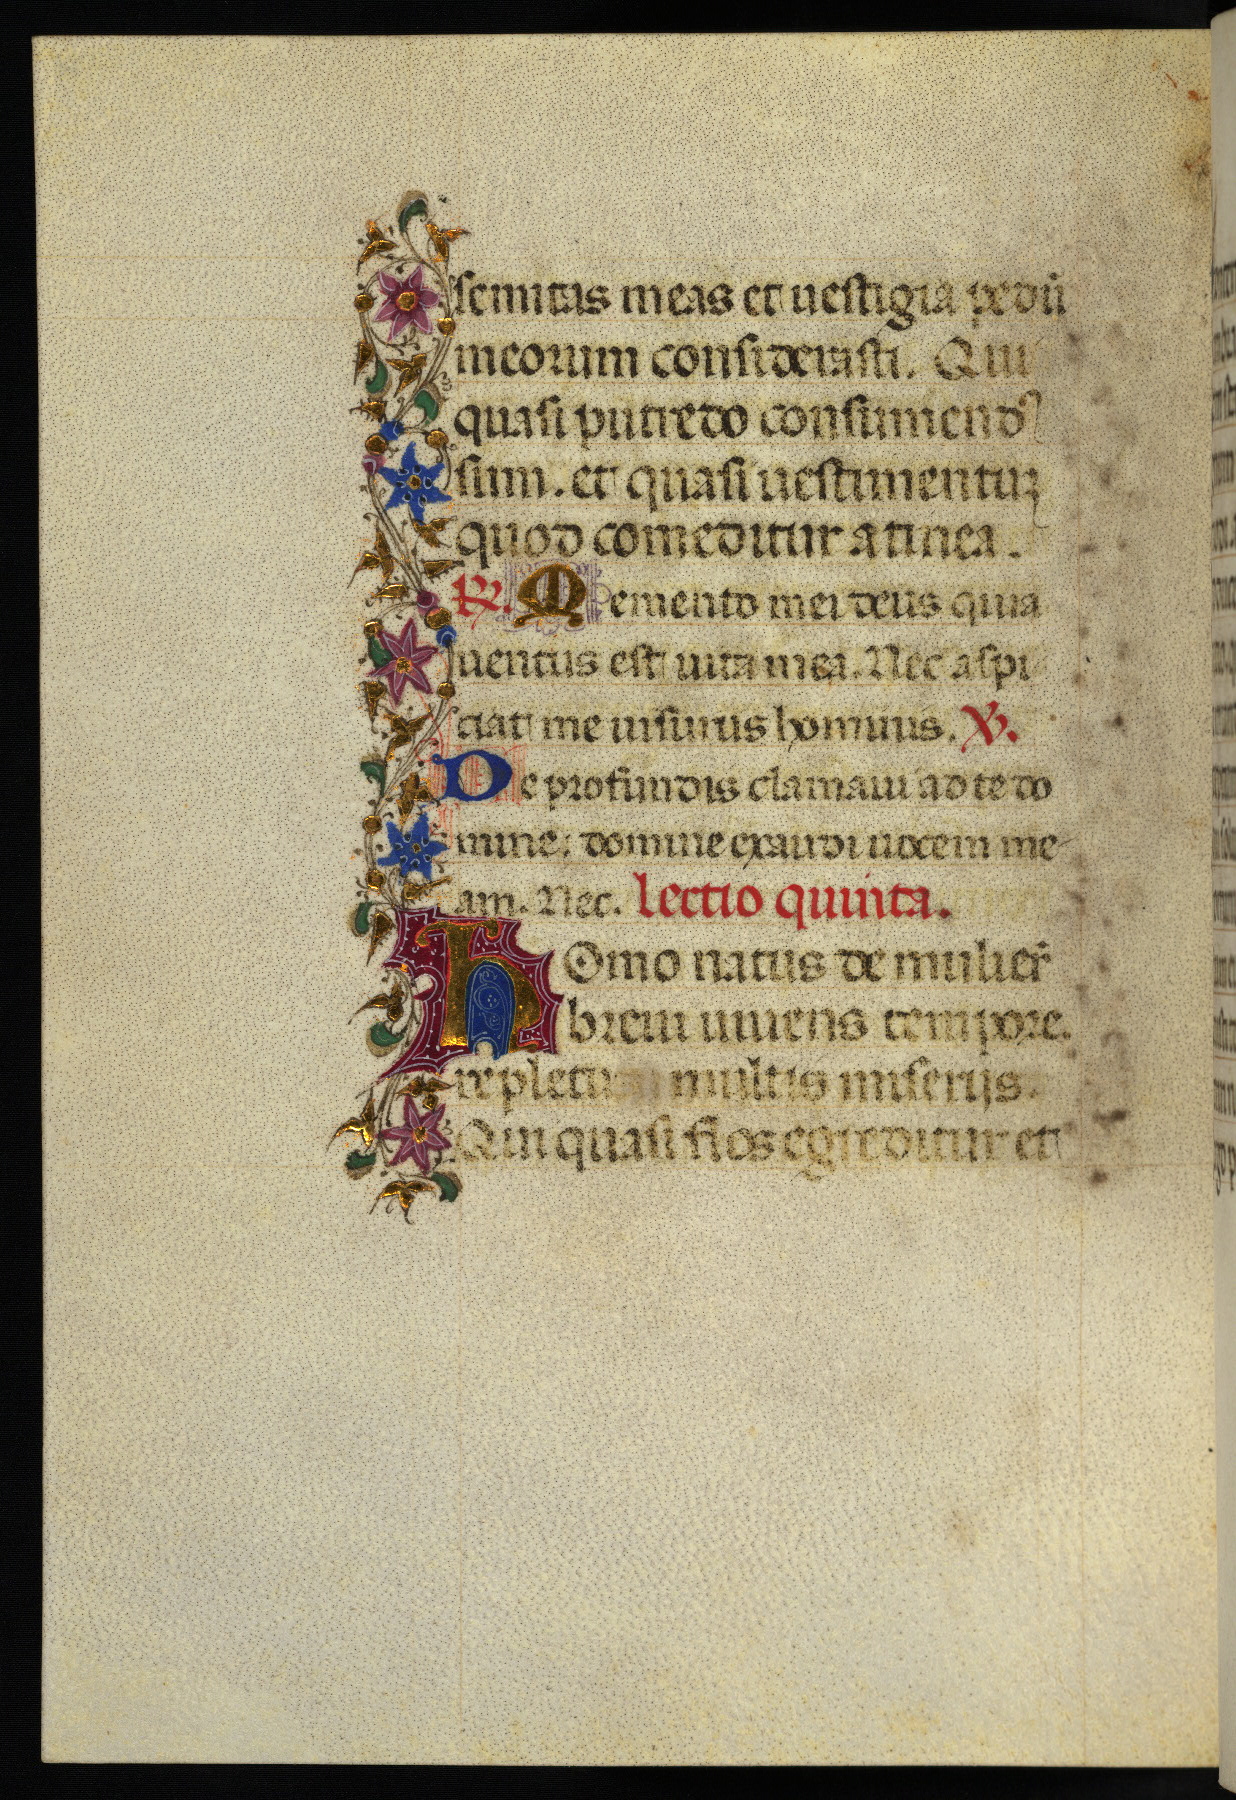 semitas meas et uestigia pedū
meorum considerasti. Qui
quasi putredo consumendꝰ
sum. et quasi uestimentuꝫ
quod comeditur a tinea.
R. Memento mei deus quia
uentus est uita mea. Nec aspi
ciat me uisusus hominis. V.
De profundis clamaui ad te do
mine: domine exaudi uocem me
am. Nec. lectio quinta.
Homo natus de mulier̄
breui uiuens tempore.
repletus multis miserijs.
Qui quasi flos egreditur et